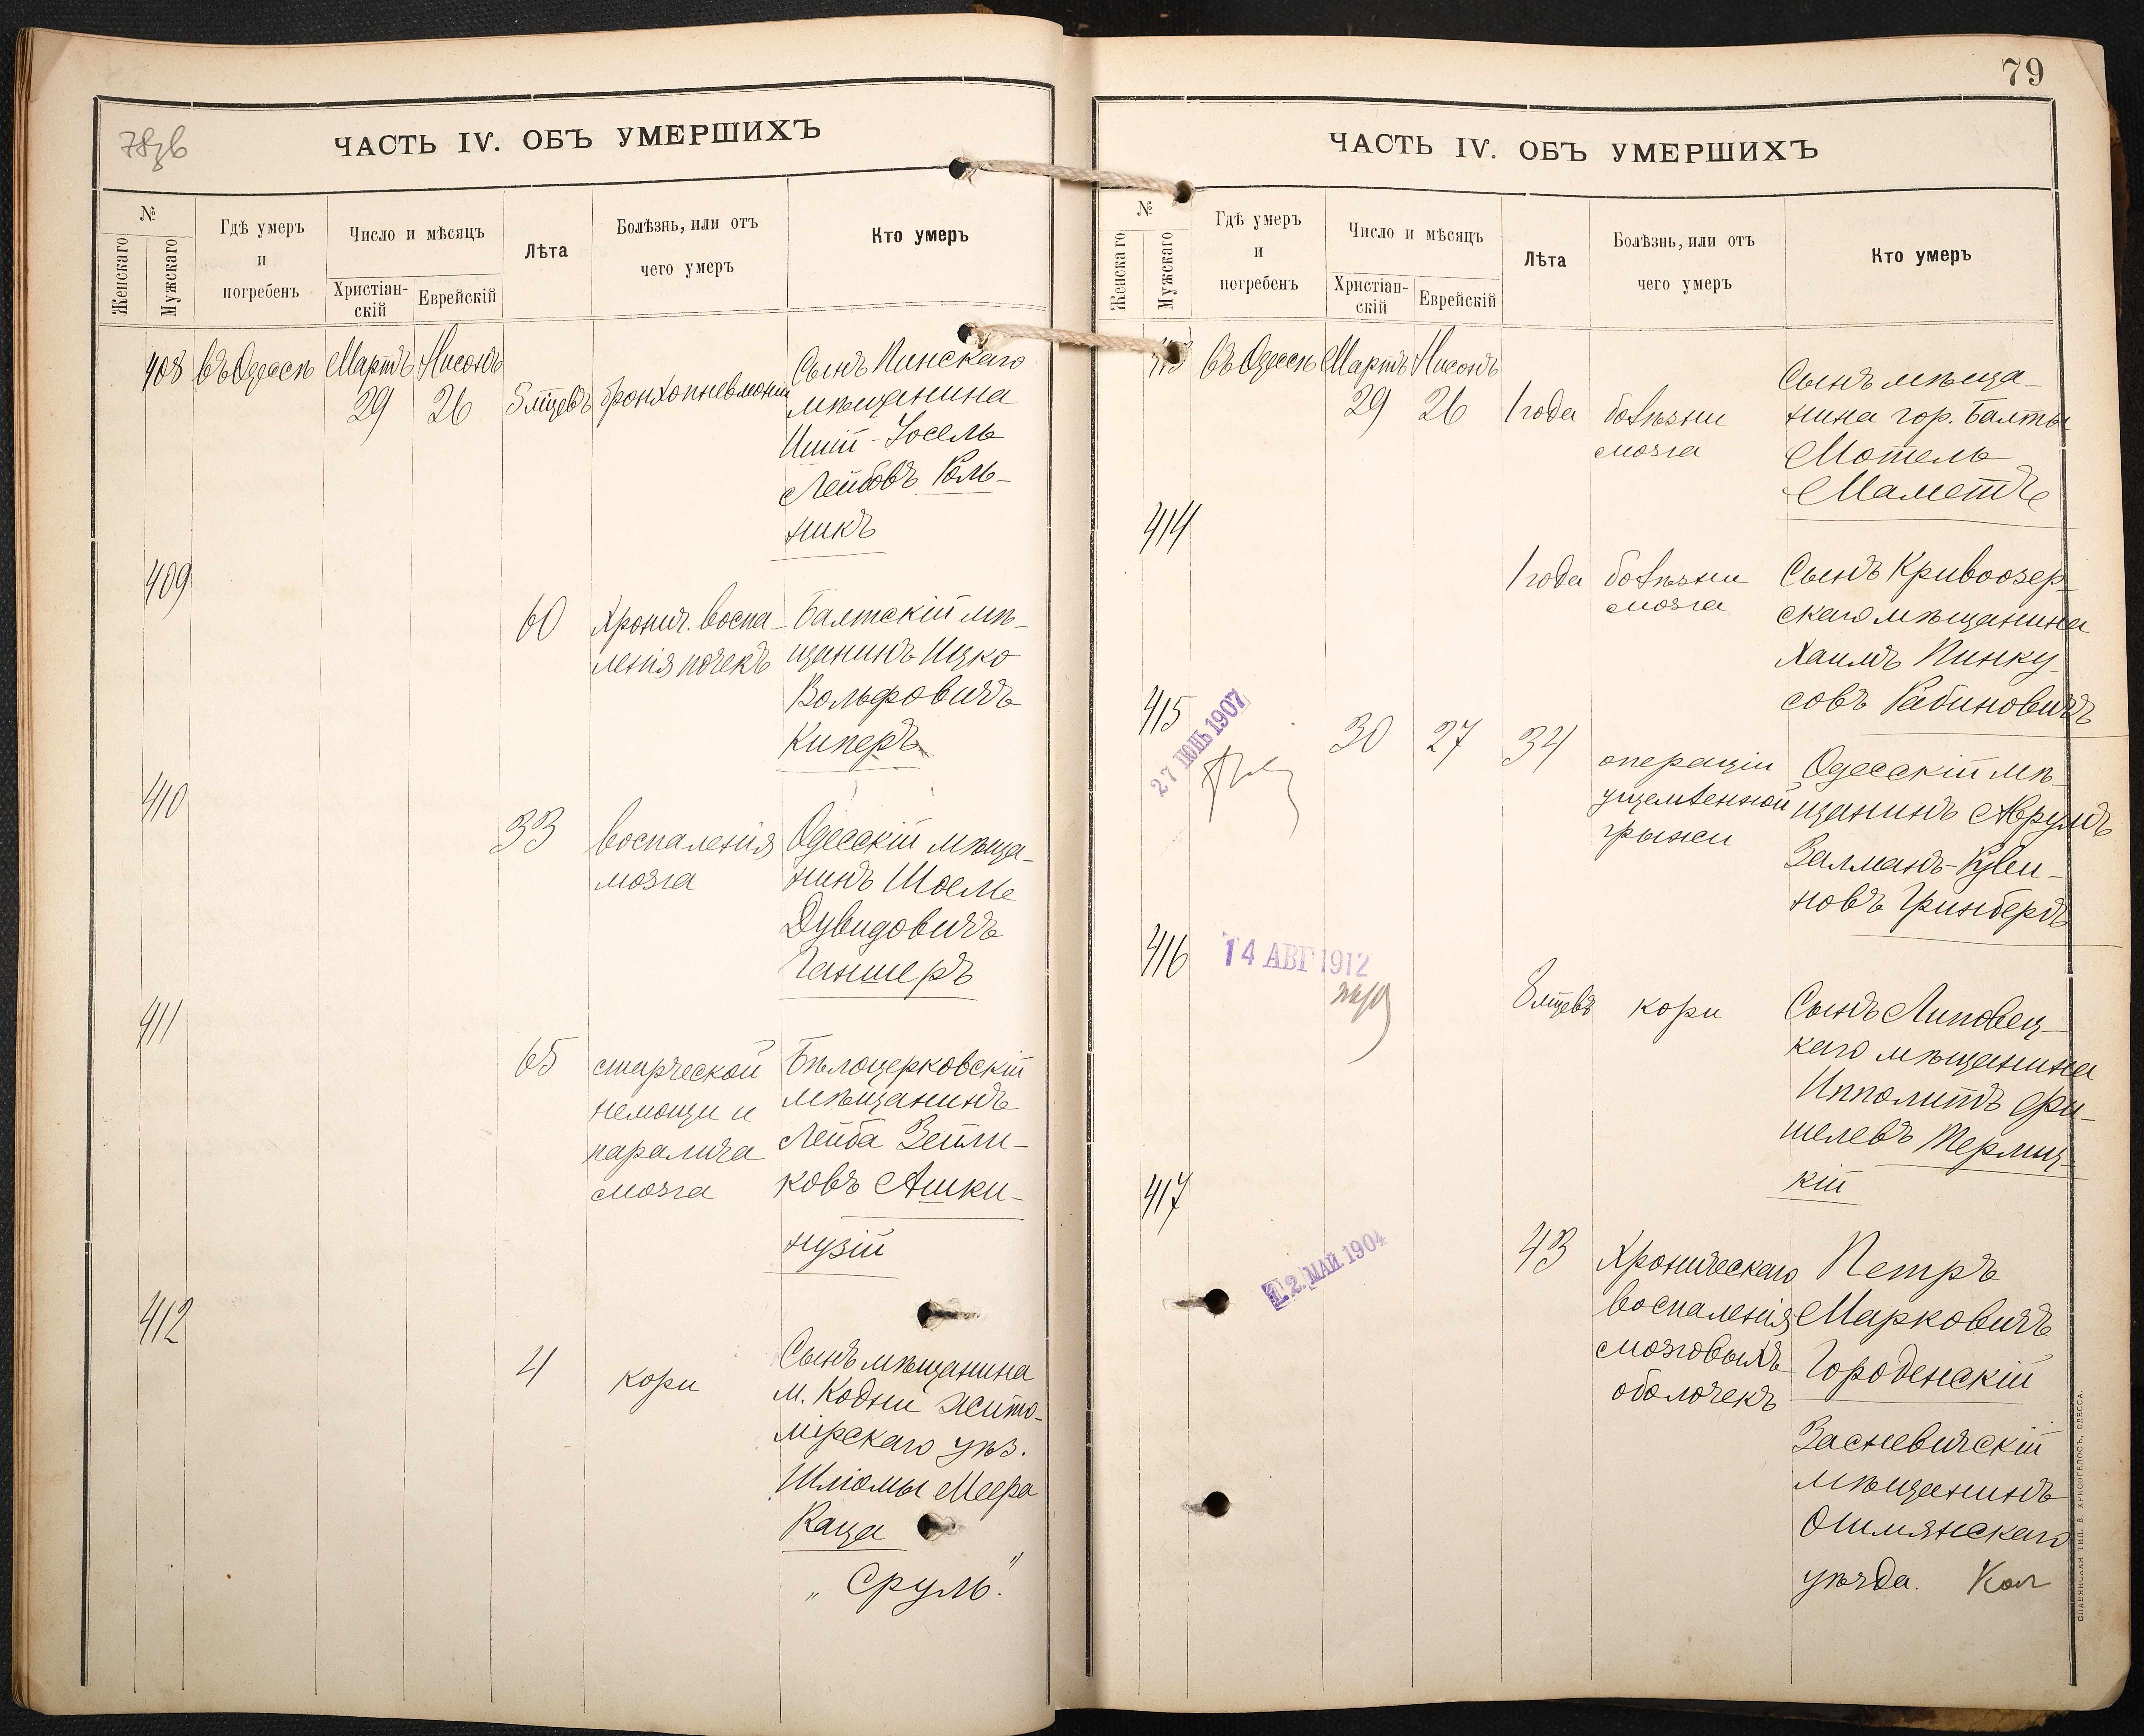 78зв
ЧАСТЬ IV. ОБЪ УМЕРШИХЪ
№
Женскаго
Мужскаго
Гдѣ умеръ
и
погребенъ
Число и мѣсяцъ
Христіан-
скій
Еврейскій
Лѣта
Болѣзнь, или отъ
чего умеръ
Кто умеръ
408 въ Одессѣ Мартъ 29 Нисонъ 26
8 мцевъ бронхопневмоніи
Сынъ Пинскаго
мѣщанина
Иций-Іосель
Лейбовъ Коль-
никъ
409
60
Хронич. воспа-
ленія почекъ
Балтскій мѣ-
щанинъ Ицко
Вольфовичъ
Киперъ
410
33
воспаленія
мозга
Одесскій мѣща-
нинъ Шоель
Дувидовичъ
Ганшеръ
411
65
старческой
немощи и
паралича
мозга
Бѣлоцерковскій
мѣщанинъ
Лейба Зейли-
ковъ Ашки-
нузій
412
4
кори
Сынъ мѣщанина
м. Кодни Жито-
мірскаго уѣз.
Шліомы Меера
Каца
„Сруль“.
79
ЧАСТЬ IV. ОБЪ УМЕРШИХЪ
№
Женскаго
Мужскаго
Гдѣ умеръ
и
погребенъ
Число и мѣсяцъ
Христіан-
скій
Еврейскій
Лѣта
Болѣзнь, или отъ
чего умеръ
Кто умеръ
413 въ Одессѣ Мартъ 29 Нисонъ 26
1 года
болѣзни
мозга
Сынъ мѣща-
нина гор. Балты
Мотель
Маметъ
414
1 года
болѣзни
мозга
Сынъ Кривоозер-
скаго мѣщанина
Хаимъ Пинку-
совъ Рабиновичъ
415
27 ІЮНЬ 1907
30 27 34
операціи
ущемленной
грыжи
Одесскій мѣ-
щанинъ Аврумъ
Залманъ-Куви-
новъ Гринбергъ
416
14 АВГ 1912
8 мцевъ
кори
Сынъ Липовец-
каго мѣщанина
Ипполитъ Фи-
шелевъ Терлиц-
кій
417
12 МАЙ 1904
43
Хроническаго
воспаленія
мозговыхъ
оболочекъ
Петръ
Марковичъ
Городенскій
Засневичскій
мѣщанинъ
Ошмянскаго
уѣзда.
СЛАВЯНСКАЯ ТИП. Н. ХРИСОГЕЛОСЪ, ОДЕССА.